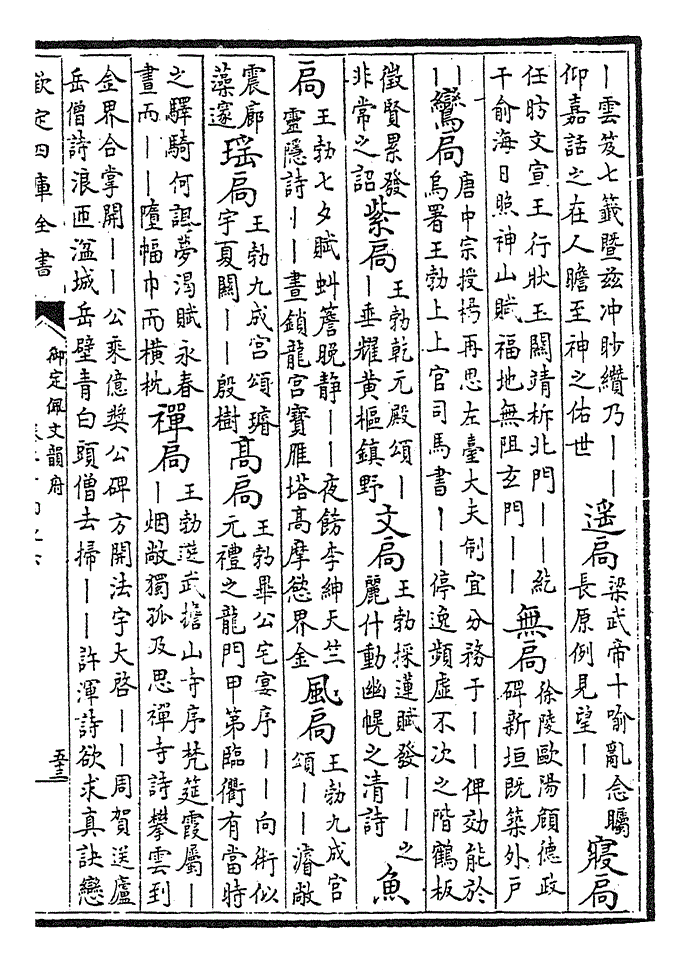 ｜雲笈七籤暨兹冲眇纘乃｜｜
仰嘉話之在人瞻至神之佑世
遥扃
梁武帝十喻亂念矚
長原例見望｜｜
寢扃
任昉文宣王行狀玉關靖柝北門｜｜紇
干俞海日照神山賦福地無阻玄門｜｜
無扃
徐陵歐陽頠德政
碑新垣既築外戶
｜｜
鸞扃
唐中宗授楊再思左臺大夫制宜分務于｜｜俾効能於
烏署王勃上上官司馬書｜｜停逸頻虛不次之階鶴板
徵賢累發
非常之詔
紫扃
王勃乾元殿頌｜
｜垂耀黄樞鎮野
文扃
王勃採蓮賦發｜｜之
麗什動幽幌之清詩
魚
扃
王勃七夕賦虯簷晚静｜｜夜飭李紳天竺
靈隱詩｜｜晝鎖龍宮寶雁塔高摩慾界金
風扃
王勃九成宮
頌｜｜濬敞
震廊
藻邃
瑶扃
王勃九成宮頌璿
宇夏闢｜｜殷樹
髙扃
王勃畢公宅宴序｜｜向術似
元禮之龍門甲第臨衢有當時
之驛騎何諷夢渴賦永春
晝而｜｜墮幅巾而橫枕
禪扃
王勃遊武擔山寺序梵筵霞屬｜
｜烟敞獨孤及思禪寺詩攀雲到
金界合掌開｜｜公乘億奬公碑方開法宇大啓｜｜周賀送廬
岳僧詩浪匝湓城岳壁青白頭僧去掃｜｜許渾詩欲求真訣戀
欽定四庫全書
御定佩文韻府
五三